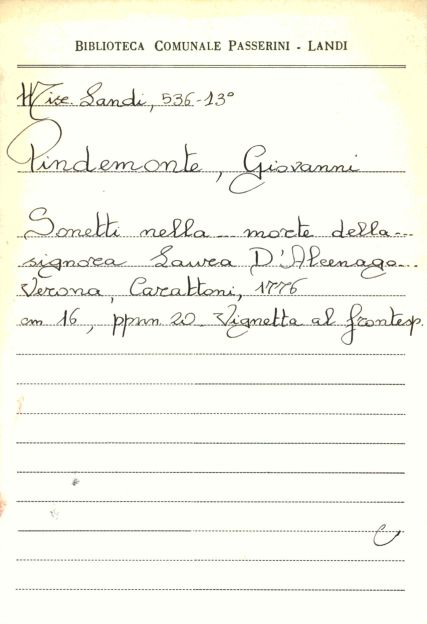 BIBLIOTECA COMUNALE PASSERINI - LANDI
Misc. Landi, 536-13°
Pindemonte, Giovanni
Sonetti nella morte della
signora Laura D'Alcenago
Verona, Carattoni, 1776
cm 16, ppnn 20. Vignetta al frontesp.